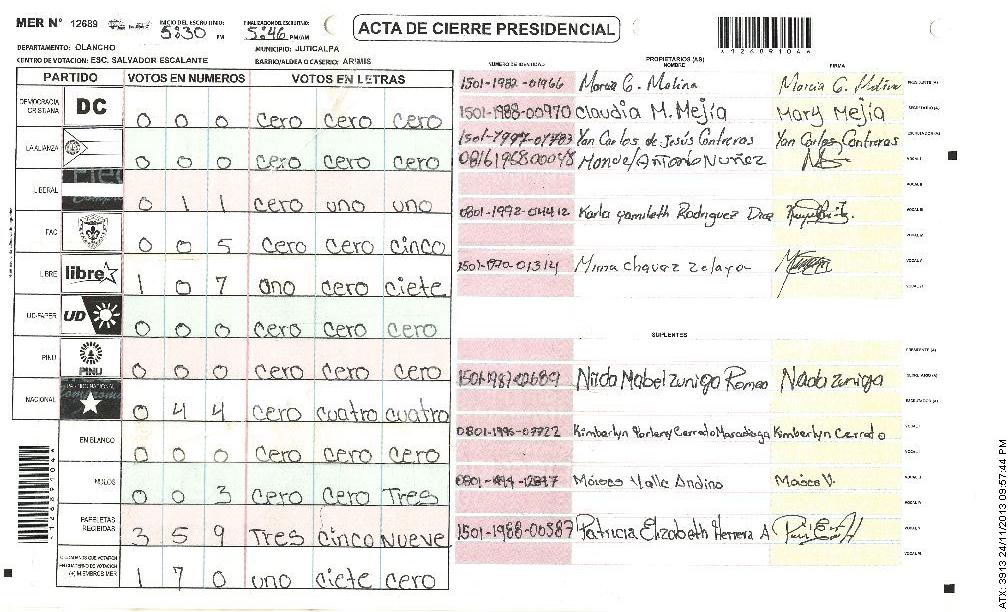 MER N° 12689 INICIO DEL ESCRUTINIO: 5:30 PM FINALIZACION DEL ESCRUTINIO: 5:46 PM/AM
ACTA DE CIERRE PRESIDENCIAL
1 2 6 8 9 1 0 4
DEPARTAMENTO: OLANCHO MUNICIPIO: JUTICALPA
CENTRO DE VOTACION: ESC. SALVADOR ESCALANTE BARRIO/ALDEA O CASERIO:
PARTIDO VOTOS EN NUMEROS VOTOS EN LETRAS
DEMOCRACIA CRISTIANA DC 0 0 0 cero cero cero
LA ALIANZA 0 0 0 cero cero cero
LIBERAL 0 1 1 cero uno uno
FAC 0 0 5 cero cero cinco
LIBRE libre 1 0 7 uno cero ciete
UD-FAPER UD 0 0 0 cero cero cero
PINU PINU 0 0 0 cero cero cero
NACIONAL 0 4 4 cero cuatro cuatro
EN BLANCO 0 0 0 cero cero cero
NULOS 0 0 3 cero cero Tres
PAPELETAS RECIBIDAS 3 5 9 Tres cinco nueve
CIUDADANOS QUE VOTARON EN CUADERNO DE VOTACION (+) MIEMBROS MER 1 7 0 uno ciete cero
PROPIETARIOS (AS)
NUMERO DE IDENTIDAD NOMBRE FIRMA
1501-1982-01966 Marcia G. Molina Marcia G. Molina PRESIDENTE (A)
1501-1988-00970 Claudia M. Mejía Mary Mejia SECRETARIO (A)
Yan Carlos de Jesús Contreras Yan Carlos Contreras ESCRUTADOR (A)
0816195800048 Antonio Nuñez VOCAL I
VOCAL II
0801-1992-04412 Karla Yamileth Rodriguez Diaz VOCAL III
VOCAL IV
Mirna Chavez Zelaya VOCAL V
VOCAL VI
SUPLENTES
PRESIDENTE (A)
1501-1987-02689 Mabel Zuniga Romero Zuniga SECRETARIO (A)
ESCRUTADOR (A)
0801-1995-07722 Kimberlyn Cerrato Kimberlyn Cerrato VOCAL I
VOCAL II
Moises Valle Andino Moises V. VOCAL III
VOCAL IV
1501-1988-00587 Patricia Elizabeth Herrera A VOCAL V
VOCAL VI
ATX: 3913 24/11/2013 09:57:44 PM